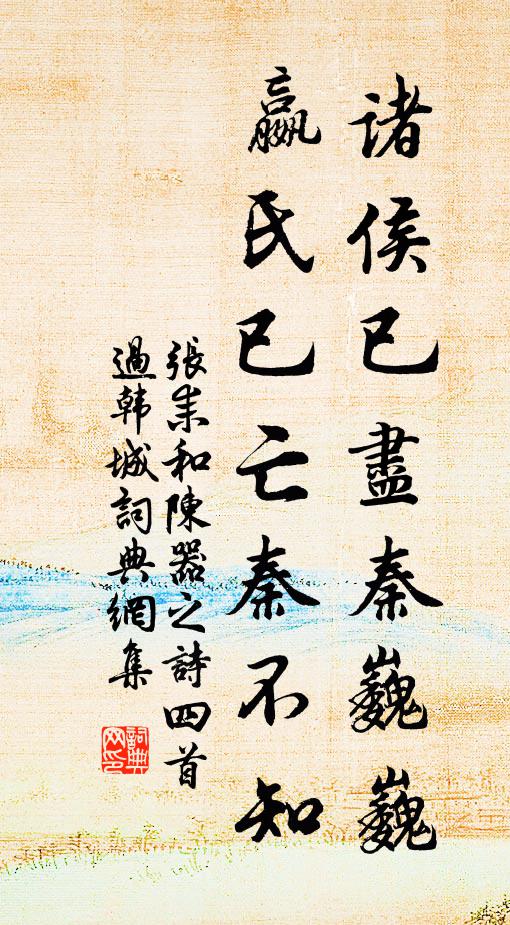 諸侯已盡秦巍巍
嬴氏已亡秦不知
張耒和陳器之詩四首
過韩城詞典網集
詞典網印